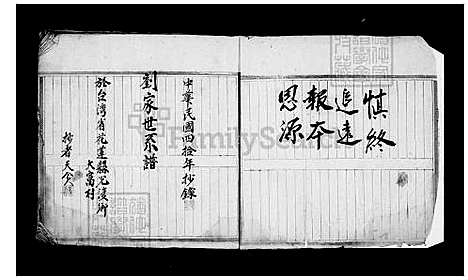 慎終
追遠
報本
思源
中華民國四拾年抄錄
劉家世系譜
於台湾省花蓮縣光復鄉
大富村
抄者天今
FamilySearch